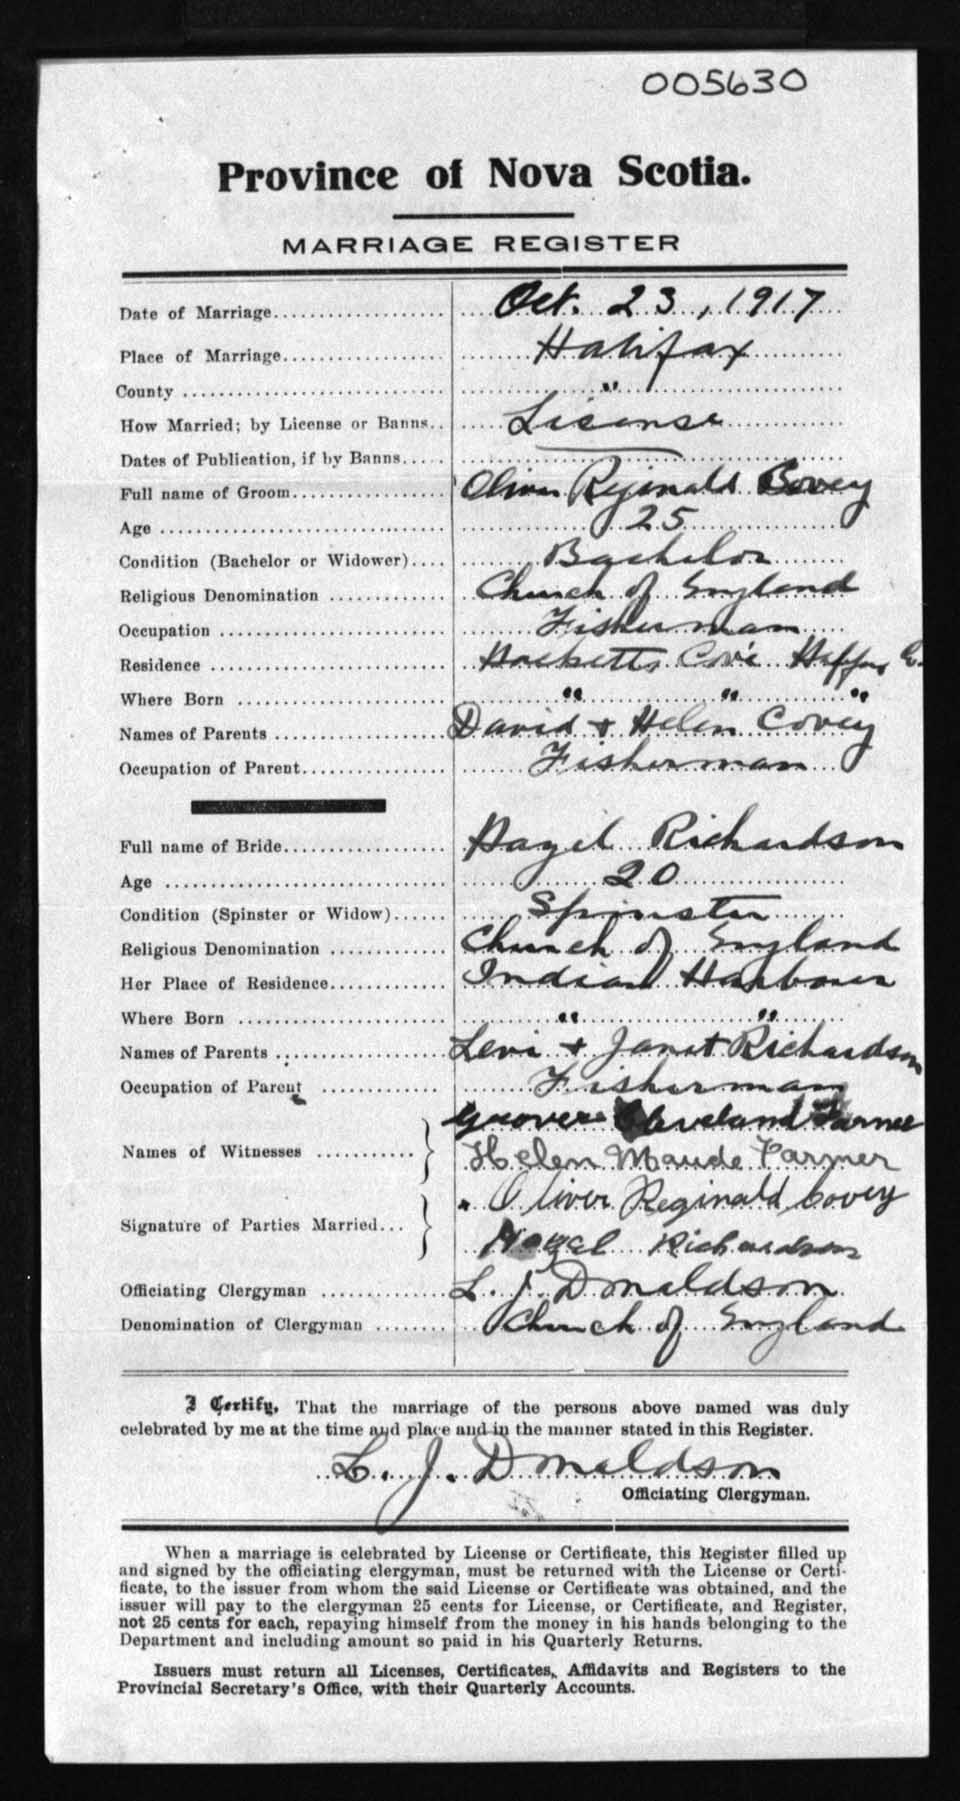 005630
Province of Nova Scotia.
MARRIAGE REGISTER
Date of Marriage Oct. 23, 1917
Place of Marriage Halifax
County "
How Married; by License or Banns License
Dates of Publication, if by Banns
Full name of Groom Oliver Reginald Covey
Age 25
Condition (Bachelor or Widower) Bachelor
Religious Denomination Church of England
Occupation Fisherman
Residence Hacketts Cove Halifax Co.
Where Born " " "
Names of Parents David + Helen Covey
Occupation of Parent Fisherman
Full name of Bride Hazel Richardson
Age 20
Condition (Spinster or Widow) Spinster
Religious Denomination Church of England
Her Place of Residence Indian Harbour
Where Born " "
Names of Parents Levi + Janet Richardson
Occupation of Parent Fisherman
Grover Cleveland Farmer
Names of Witnesses Helen Maude Farmer
Oliver Reginald Covey
Signature of Parties Married Hazel Richardson
Officiating Clergyman L. J. Donaldson
Denomination of Clergyman Church of England
I Certify, That the marriage of the persons above named was duly
celebrated by me at the time and place and in the manner stated in this Register.
L. J. Donaldson
Officiating Clergyman.
When a marriage is celebrated by License or Certificate, this Register filled up
and signed by the officiating clergyman, must be returned with the License or Certi-
ficate, to the issuer from whom the said License or Certificate was obtained, and the
issuer will pay to the clergyman 25 cents for License, or Certificate, and Register,
not 25 cents for each, repaying himself from the money in his hands belonging to the
Department and including amount so paid in his Quarterly Returns.
Issuers must return all Licenses, Certificates, Affidavits and Registers to the
Provincial Secretary's Office, with their Quarterly Accounts.